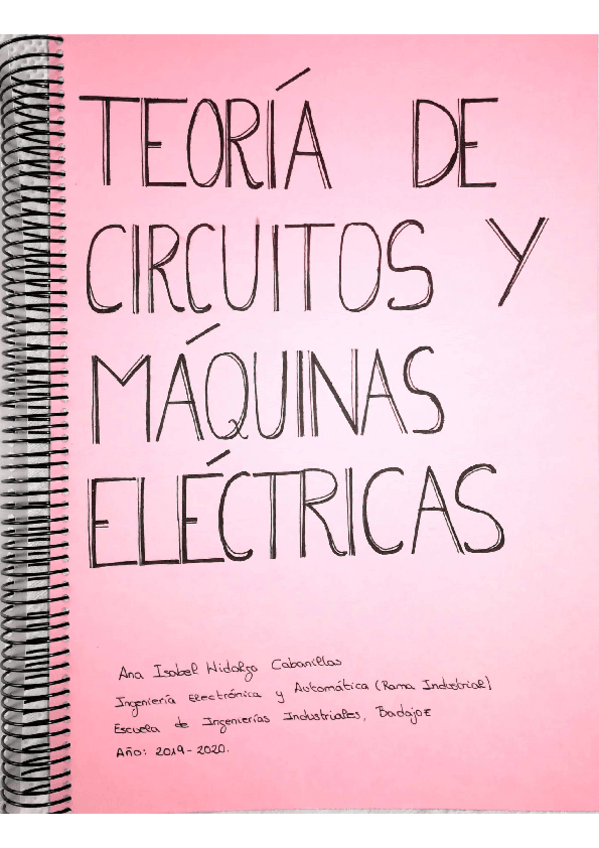 TEORÍA DE
CIRCUITOS Y
MÁQUINAS
ELÉCTRICAS
Ana Isabel Hidalgo Cabanillas
Ingeniería Electrónica y Automática (Rama Industrial)
Escuela de Ingenierías Industriales, Badajoz
Año: 2019-2020.